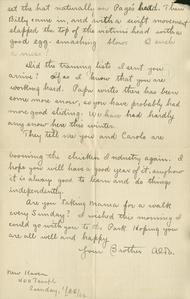 set the hat naturally on Page's head. Then
Billy came in, and with a swift movement
slapped the top of the victim's head with a
good egg-smashing blow. Such
a mess!
Did the training lists I sent you
arrive? If so I know that you are
working hard. Papa writes there has been
some more snow, so you have probably had
more good sliding. We have had hardly
any snow here this winter.
They tell me you and Carola are
booming the chicken industry again. I
hope you will have a good year of it, anyhow
it is always good to learn and do things
independently.
Are you taking Mama for a walk
every Sunday? I wished this morning I
could go with you to the Park. Hoping you
are all well and happy
Your Brother
New Haven
Sunday,